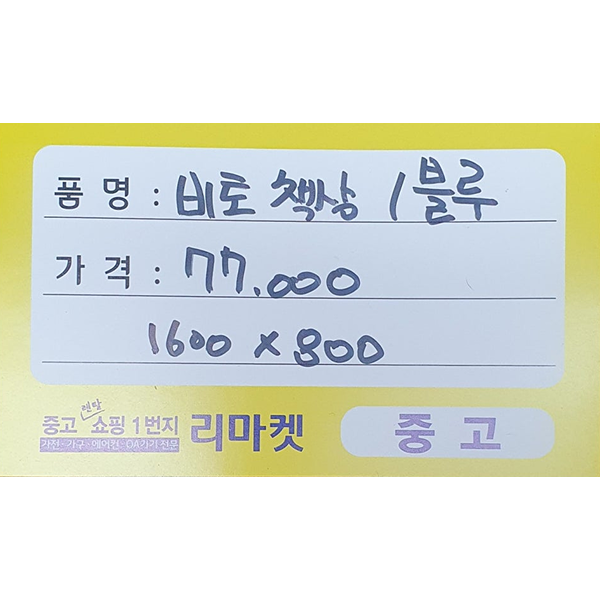 품 명 : 비토 책상 / 블루
가 격 : 77.000
1600 x 800
렌탈
중고 쇼핑 1번지
가전·가구·에어컨·OA기기 전문
리마켓
중 고